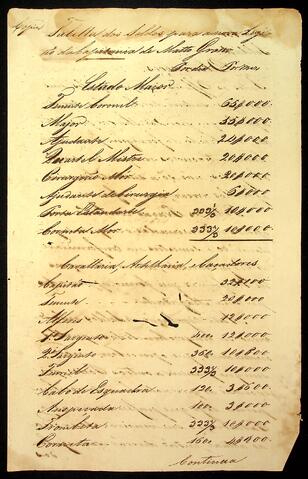 Copia
Tabella dos Soldos para a nova Legi
ão da Capitania de Matto Grosso
Por dia Por mez
Estado Maior
Tenente Coronel
Major
Ajudante
Quartel Mestre 20$000
Cirurgião Mor 20$000
Ajudantes de Cirurgia
Porta Estandarte 333⅓ 10$000
Corneta Mor 333⅓ 10$000
Cavallaria Artilharia Caçadores
Capitão
Tenente 20$000
Alferes
1º Sargento 400 12$000
2º Sargento 360 10$800
Furriel 333⅓ 10$000
Cabo de Esquadra 120 3$600
Anspeçada 100 3$000
Trombeta 333⅓ 10$000
Corneta 160 4$800
Continua